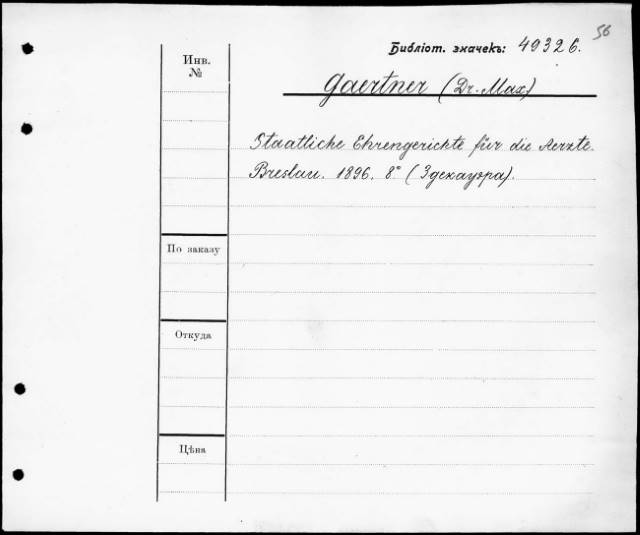 56
Библіот. значекъ: 49326.
Инв.
№
Gaertner (Dr. Max)
Staatliche Ehrengerichte für die Aerzte.
Breslau. 1896. 8° (Здекауэра).
По заказу
Откуда
Цѣна